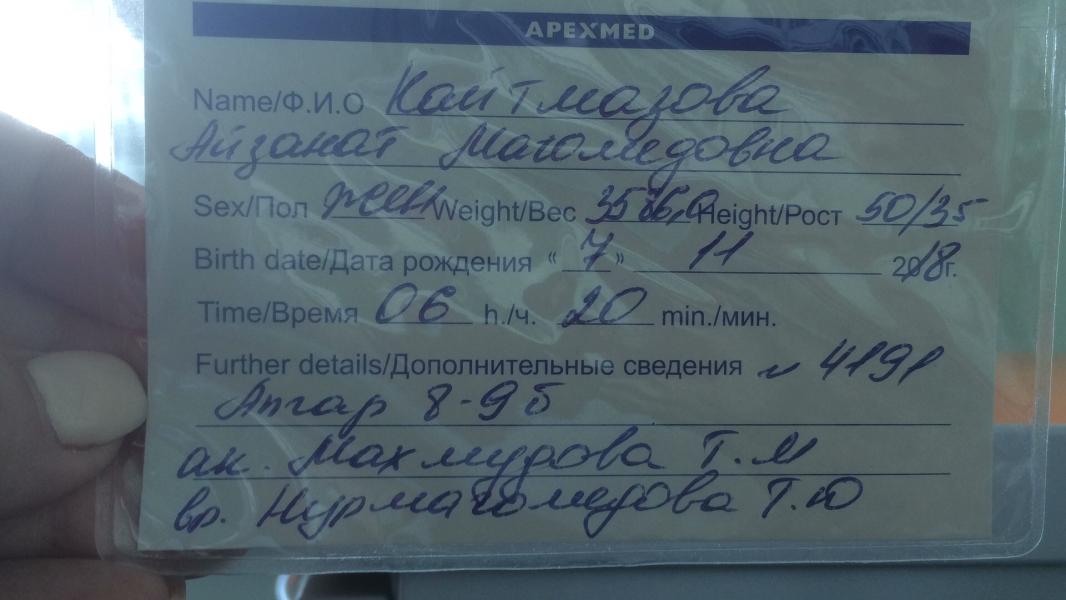 APEXMED
Name/Ф.И.О Кайтмазова
Айзанат Магомедовна
Sex/Пол жен Weight/Вес 3576,0 Height/Рост 50/35
Birth date/Дата рождения “ 7 ” 11 2018г.
Time/Время 06 h./ч. 20 min./мин.
Further details/Дополнительные сведения N 4191
Апгар 8-9б
ак. Махмудова Т.М
вр. Нурмагомедова Т.Ю